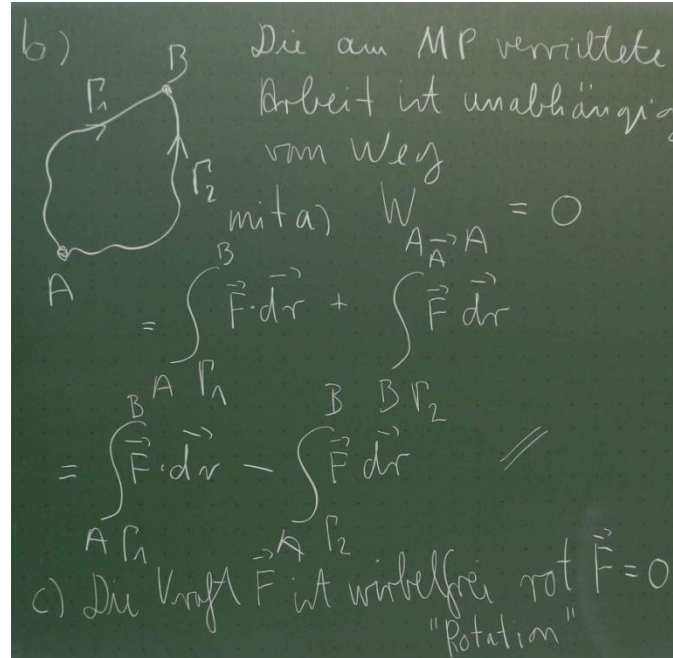 b) Die am MP verrichtete
Arbeit ist unabhängig
vom Weg
B
Γ₁
Γ₂
A
mit a) W_{A→A} = 0
= ∫_{A Γ₁}^{B} F⃗·dr⃗ + ∫_{B Γ₂} F⃗ dr⃗
= ∫_{A Γ₁}^{B} F⃗·dr⃗ − ∫_{A Γ₂}^{B} F⃗ dr⃗ //
c) Die Kraft F⃗ ist wirbelfrei rot F⃗ = 0
"Rotation"